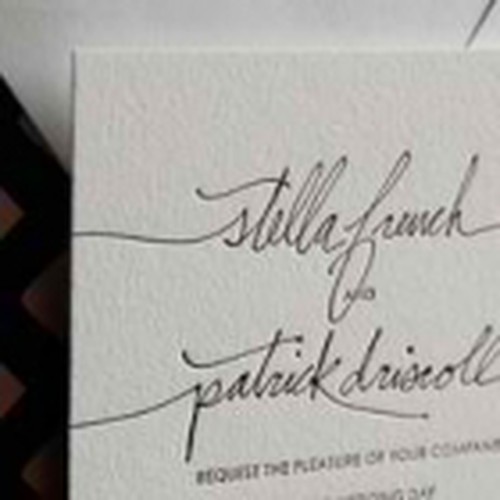 stella french
AND
patrick driscoll
REQUEST THE PLEASURE OF YOUR COMPANY
WEDDING DAY